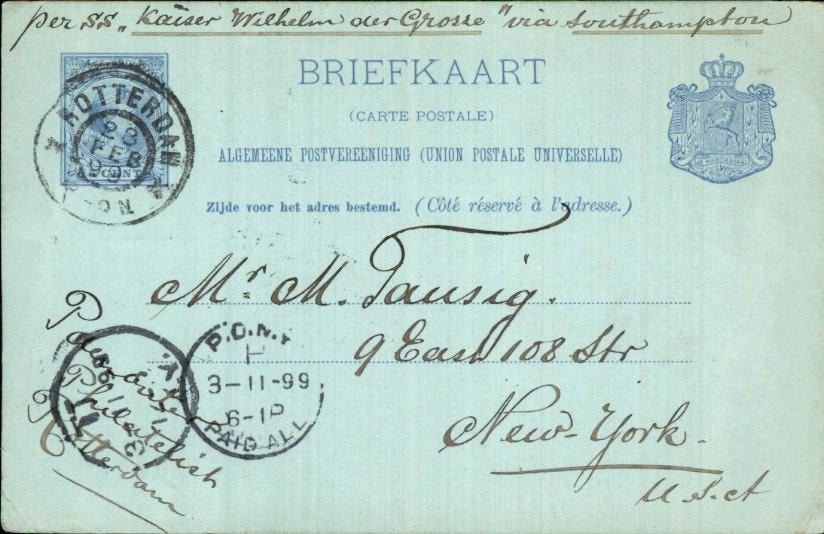 per SS „Kaiser Wilhelm der Grosse" via Southampton
BRIEFKAART
(CARTE POSTALE)
ALGEMEENE POSTVEREENIGING (UNION POSTALE UNIVERSELLE)
Zijde voor het adres bestemd. (Côté réservé à l'adresse.)
ROTTERDAM
28
FEB
CENT
Mr. M. Tausig.
9 East 108 Str
New-York.
U.S.A
P.O.N.Y.
3-11-99
6-1P
PAID ALL
Philatelist
Rotterdam